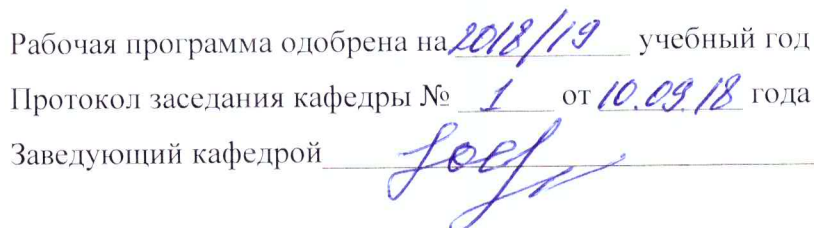 Рабочая программа одобрена на 2018/19 учебный год
Протокол заседания кафедры № 1 от 10.09.18 года
Заведующий кафедрой